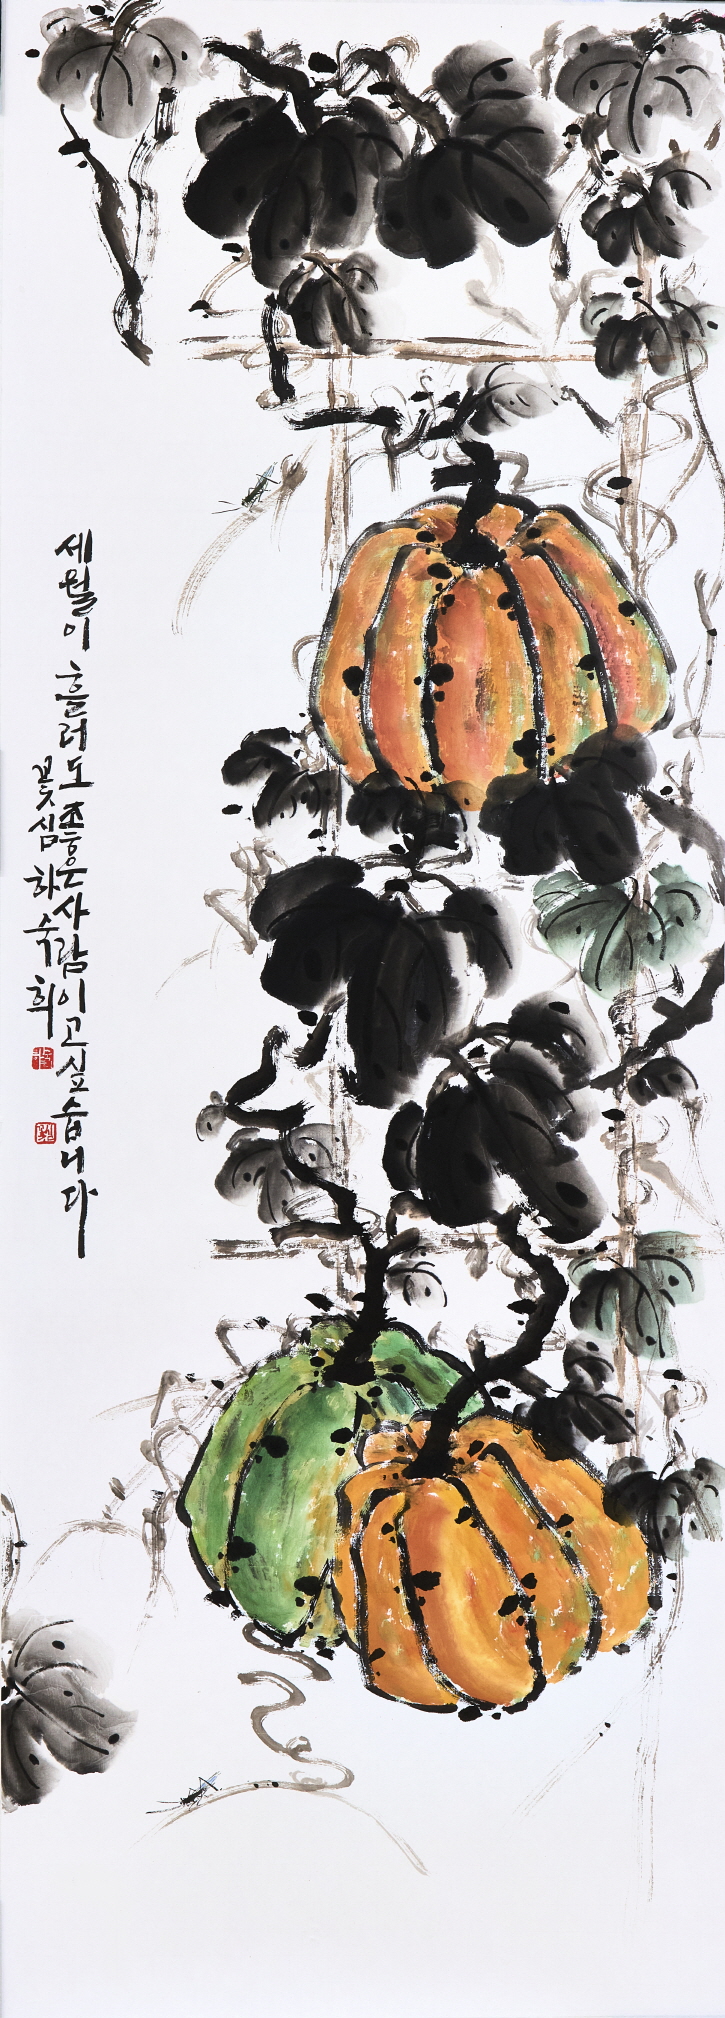 세월이 흘러도 좋은 사람이고 싶습니다
꽃심 하숙희